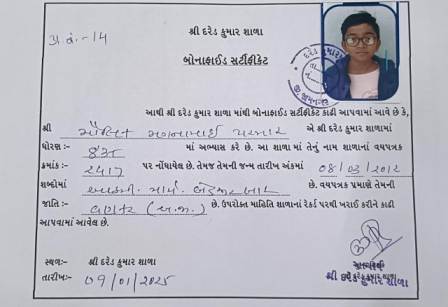 અ.નં.-14
શ્રી દરેડ કુમાર શાળા
બોનાફાઈડ સર્ટીફીકેટ
આથી શ્રી દરેડ કુમાર શાળા માંથી બોનાફાઈડ સર્ટીફીકેટ કાઢી આપવામાં આવે છે કે,
શ્રી પરમાર એ શ્રી દરેડ કુમાર શાળામાં
ધોરણ :- માં અભ્યાસ કરે છે. આ શાળા માં તેનું નામ શાળાનાં વયપત્રક
ક્રમાંક :- ૨૬૧૭ પર નોંધાયેલ છે. તેમજ તેમની જન્મ તારીખ અંકમાં 08/03/2012
શબ્દોમાં આઠમી માર્ચ બે હજાર બાર છે. વયપત્રક પ્રમાણે તેમની
જાતિ :- વણકર (અ.જા.) છે. ઉપરોક્ત માહિતિ શાળાનાં રેકર્ડ પરથી ખરાઈ કરીને કાઢી
આપવામાં આવેલ છે.
સ્થળ:- શ્રી દરેડ કુમાર શાળા
તારીખ:- 09/01/2025
શ્રી દરેડ કુમાર શાળા